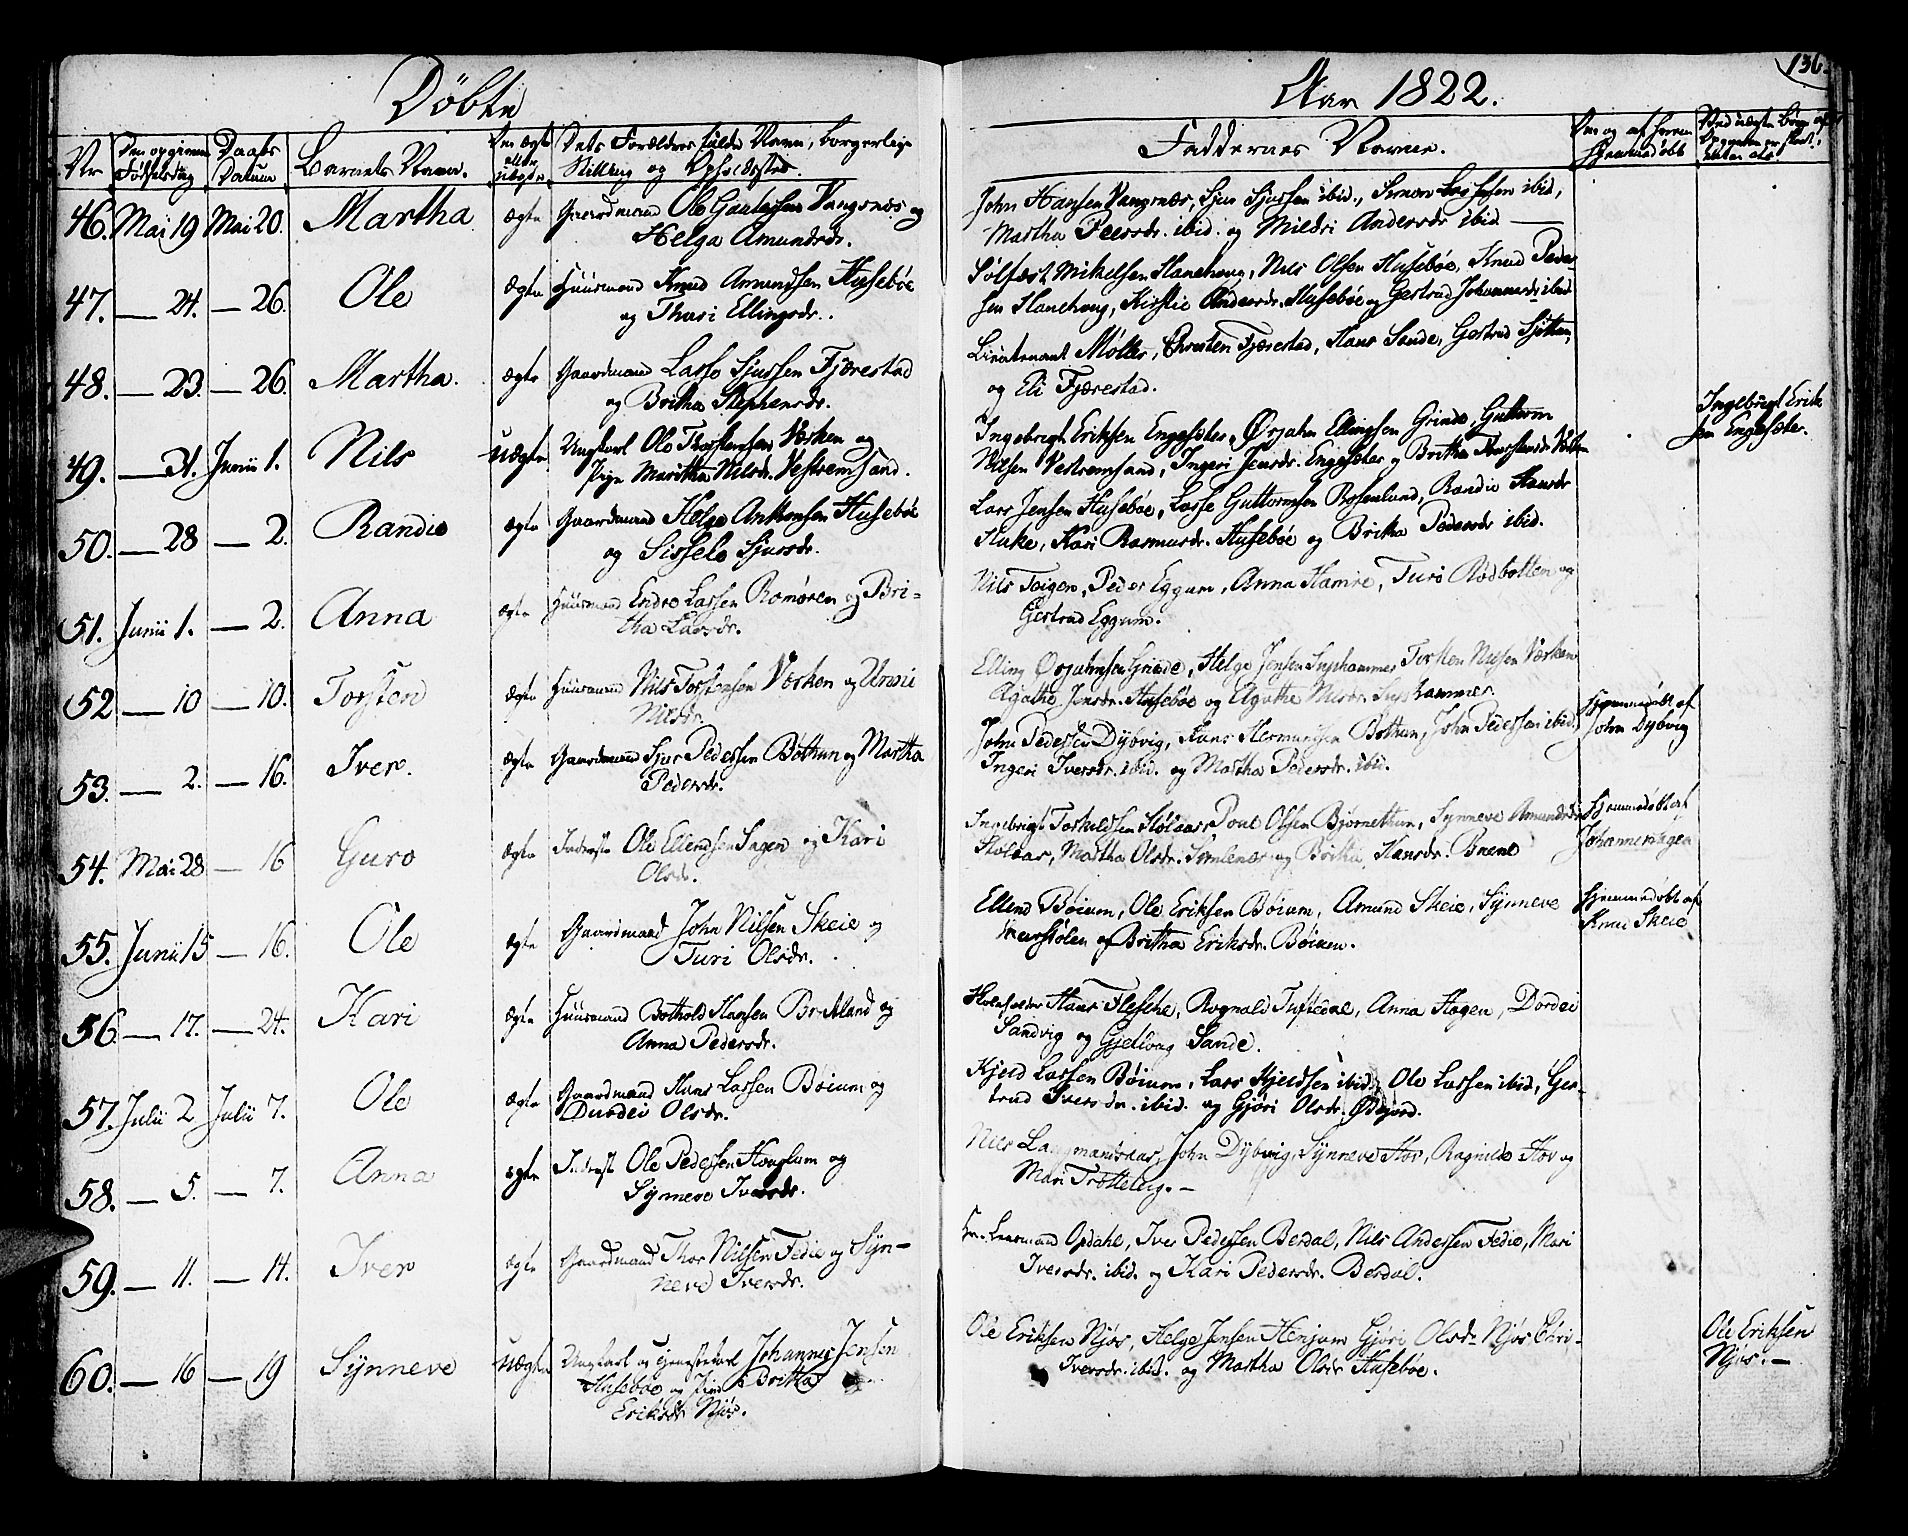 Döbte
Aar 1822.
136.
Nr
Den opgivne Födselsdag
Daabs Datum
Barnets Navn.
Om ægte eller uægte
Dets Forældres fulde Navn, borgerlige
Stilling og Opholdssted.
Faddernes Navne.
Om og af hvem
hjemmedöbt
Ved uægte Börn
46. Mai 19 Mai 20. Martha ægte Gaardmand Ole Vangsnæs og
Helga Amundsdr.
John Hansen Vangsnæs, Sjur Sjursen ibid., Simon Lassesen ibid,
Martha Peersdr. ibid. og Mildri Andersdr ibid
47. — 24. — 26. Ole ægte Huusmand Knud Amundsen Husebøe
og Thuri Ellingsdr.
Sølfæst Mikelsen Hanehoug, Nils Olsen Husebøe, Knud Peder-
sen Hanehoug, Kirstie Andersdr. Husebøe og Gertrud Johannesdr ibid
48. — 23 — 26. Martha. ægte Gaardmand Lasse Sjursen Fjærestad
og Britha Stephensdr.
Lieutenant Møller, Christen Fjærestad, Hans Sande, Gertrud
og Eli Fjærestad.
49. — 31. Junii 1. Nils uægte Ungkarl Ole Thorstensen Værken og
Pige Maritha Nilsdr. Vestremsand.
Ingebrigt Eriksen Engesæter, Ørjahn Ellingsen Grinde, Guttorm
Nilsen Vestremsand, Ingeri Jensdr. Engesæter og Britha Thorstensdr. Værken
Ingebrigt Erik
sen Engesæter.
50. — 28 — 2. Randie ægte Gaardmand Helge Anthonsen Husebøe
og Sissele Sjursdr.
Lars Jensen Husebøe, Lasse Guttormsen Rosenlund, Randie Hansdr
Huke, Kari Rasmusdr. Husebøe og Britha Pedersdr ibid.
51. Junii 1. — 2. Anna ægte Huusmand Endre Lassen Romøren og Bri-
tha Larsdr.
Nils Teigen, Peder Eggum, Anna Hamre, Turi Rødbotten og
Gertrud Eggum.
52 — 10 — 10. Torsten ægte Huusmand Nils Torstensen Værken og Unni
Nilsdr.
Elling Ørjahnsen Grinde, Helge Jensen Suphammer Torsten Nilsen Værken
Agathe Jensdr. Husebøe og Agathe Nilsdr. Suphammer.
53. — 2. — 16. Iver. ægte Gaardmand Sjur Pedersen Bøthun og Martha
Pedersdr.
John Pedersen Dybvig, Hans Hermundsen Bøthun, John Pedersen ibid,
Ingeri Iversdr. ibid. og Martha Pedersdr. ibid.
Hjemmedöbt af
John Dybvig
54. Mai 28 — 16 Guro ægte Inderste Ole Ellendsen Hagen og Kari
Olsdr.
Ingebrigt Torkildsen Stølaas, Poul Olsen Bjørnethun, Synneve Amundsdr
Stølaas, Martha Olsdr. Simlenæs og Britha Hansdr.
Hjemmedöbt af
Johannes Hagen
55. Junii 15 — 16. Ole ægte Gaardmand John Nilsen Skeie og
Turi Olsdr.
Ellend Bøium, Ole Eriksen Bøium, Amund Skeie, Synneve
Murstølen og Britha Eriksdr. Bøium.
Hjemmedöbt af
Knud Skeie
56 — 17. — 24. Kari ægte Huusmand Bothold Hansen Brekland og
Anna Pedersdr.
Skoleholder Hans Flesche, Rognald Tuftedal, Anna Hagen, Dordei
Sandvig og Gjetloug Sande.
57. Julii 2 Julii 7. Ole ægte Gaardmand Hans Lassen Bøium og
Durdei Olsdr.
Kjeld Lassen Bøium, Lars Kjeldsen ibid, Ole Lassen ibid, Ger-
trud Iversdr. ibid. og Gjøri Olsdr. Ødegord.
58. — 5. — 7. Anna ægte Inderst Ole Pedersen Houglum og
Synneve Iversdr.
Nils Langmandsaas, John Dybvig, Synneve Hov, Ragnilde Hov og
Mari Trotteteig.—
59. — 11. — 14. Iver ægte Gaardmand Thor Nilsen Fedie og Syn-
neve Iversdr.
Hr. Lensmand Opdahl, Iver Pedersen Berdal, Nils Andersen Fedie, Mari
Iversdr. ibid. og Kari Pedersdr. Berdal.
60. — 16 — 19 Synneve uægte Ungkarl og Tjenestekarl Johannes Jensen
Husebøe og Pige Britha
Eriksdr Njøs.
Ole Eriksen Njøs, Helge Jensen Henjum Gjøri Olsdr Njøs
Iversdr. ibid. og Martha Olsdr Husebøe.
Ole Eriksen
Njøs.—